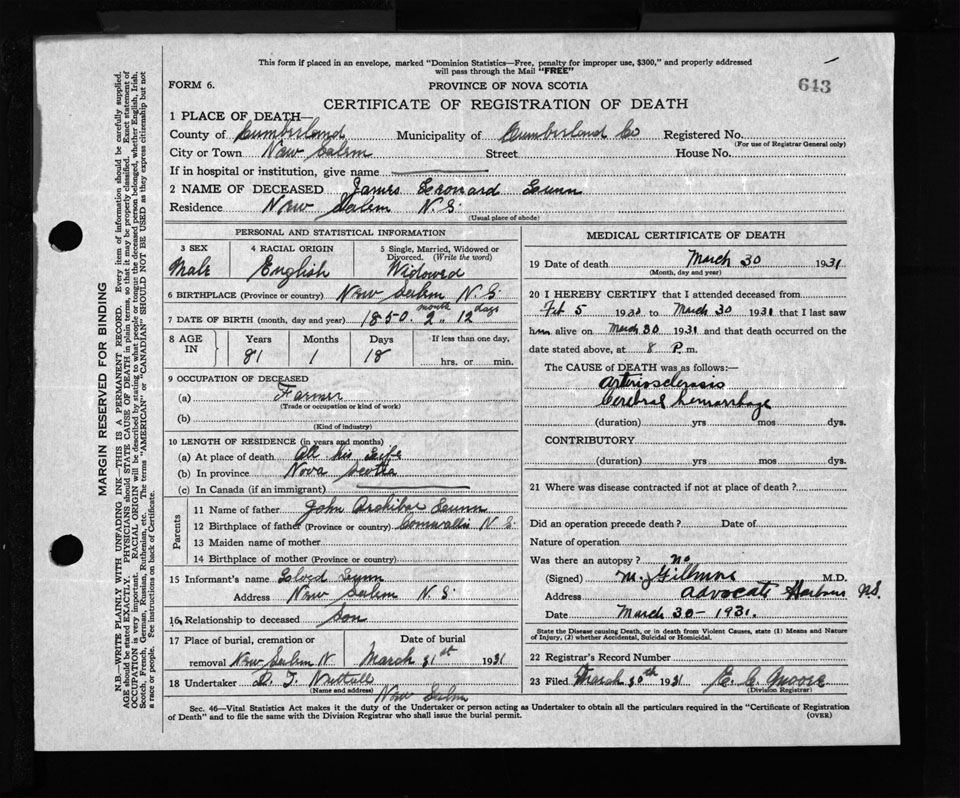 This form if placed in an envelope, marked "Dominion Statistics—Free, penalty for improper use, $300," and properly addressed
will pass through the Mail "FREE"
643
FORM 6.
PROVINCE OF NOVA SCOTIA
CERTIFICATE OF REGISTRATION OF DEATH
1 PLACE OF DEATH—
County of Cumberland Municipality of Cumberland Co Registered No.
(For use of Registrar General only)
City or Town New Salem Street House No.
If in hospital or institution, give name
2 NAME OF DECEASED James Leonard
Residence New Salem N.S.
(Usual place of abode)
PERSONAL AND STATISTICAL INFORMATION
3 SEX 4 RACIAL ORIGIN 5 Single, Married, Widowed or
Divorced. (Write the word)
Male English Widowed
6 BIRTHPLACE (Province or country) New Salem N.S.
7 DATE OF BIRTH (month, day and year) 1850. 2 month 12 days
8 AGE IN Years Months Days If less than one day,
81 1 18 hrs. or min.
9 OCCUPATION OF DECEASED
(a) Farmer
(Trade or occupation or kind of work)
(b)
(Kind of industry)
10 LENGTH OF RESIDENCE (in years and months)
(a) At place of death All his Life
(b) In province Nova Scotia
(c) In Canada (if an immigrant)
Parents
11 Name of father John
12 Birthplace of father (Province or country) Cornwallis N.S.
13 Maiden name of mother
14 Birthplace of mother (Province or country)
15 Informant's name
Address New Salem N.S.
16 Relationship to deceased Son
17 Place of burial, cremation or Date of burial
removal New Salem N March 31st 1931
18 Undertaker D. T. Nuttall
(Name and address) New Salem
MEDICAL CERTIFICATE OF DEATH
19 Date of death March 30 1931
(Month, day and year)
20 I HEREBY CERTIFY that I attended deceased from
Feb 5 193 to March 30 1931 that I last saw
him alive on March 30 1931 and that death occurred on
date stated above, at 8 P. m.
The CAUSE of DEATH was as follows:—
Arteriosclerosis
Cerebral hemorrhage
(duration) yrs mos dys.
CONTRIBUTORY
(duration) yrs mos dys.
21 Where was disease contracted if not at place of death?
Did an operation precede death? Date of
Nature of operation
Was there an autopsy? no
(Signed) M. Gillmore M.D.
Address Advocate Harbour N.S.
Date March 30 - 1931.
State the Disease causing Death, or in death from Violent Causes, state (1) Means and Nature
of Injury, (2) whether Accidental, Suicidal or Homicidal.
22 Registrar's Record Number
23 Filed March 30th 1931 E. C. Moore
(Division Registrar)
Sec. 46—Vital Statistics Act makes it the duty of the Undertaker or person acting as Undertaker to obtain all the particulars required in the "Certificate of Registration
of Death" and to file the same with the Division Registrar who shall issue the burial permit. (OVER)
MARGIN RESERVED FOR BINDING
N.B.—WRITE PLAINLY WITH UNFADING INK—THIS IS A PERMANENT RECORD. Every item of information should be carefully supplied.
AGE should be stated EXACTLY. PHYSICIANS should STATE CAUSE OF DEATH in plain terms, so that it may be properly classified. Exact statement of
OCCUPATION is very important. RACIAL ORIGIN will be described by stating to what people or tongue the deceased person belonged, whether English, Irish,
Scotch, French, German, Russian, Ruthenian, etc. The terms "AMERICAN" or "CANADIAN" SHOULD NOT BE USED as they express citizenship but not
a race or people. See instructions on back of Certificate.